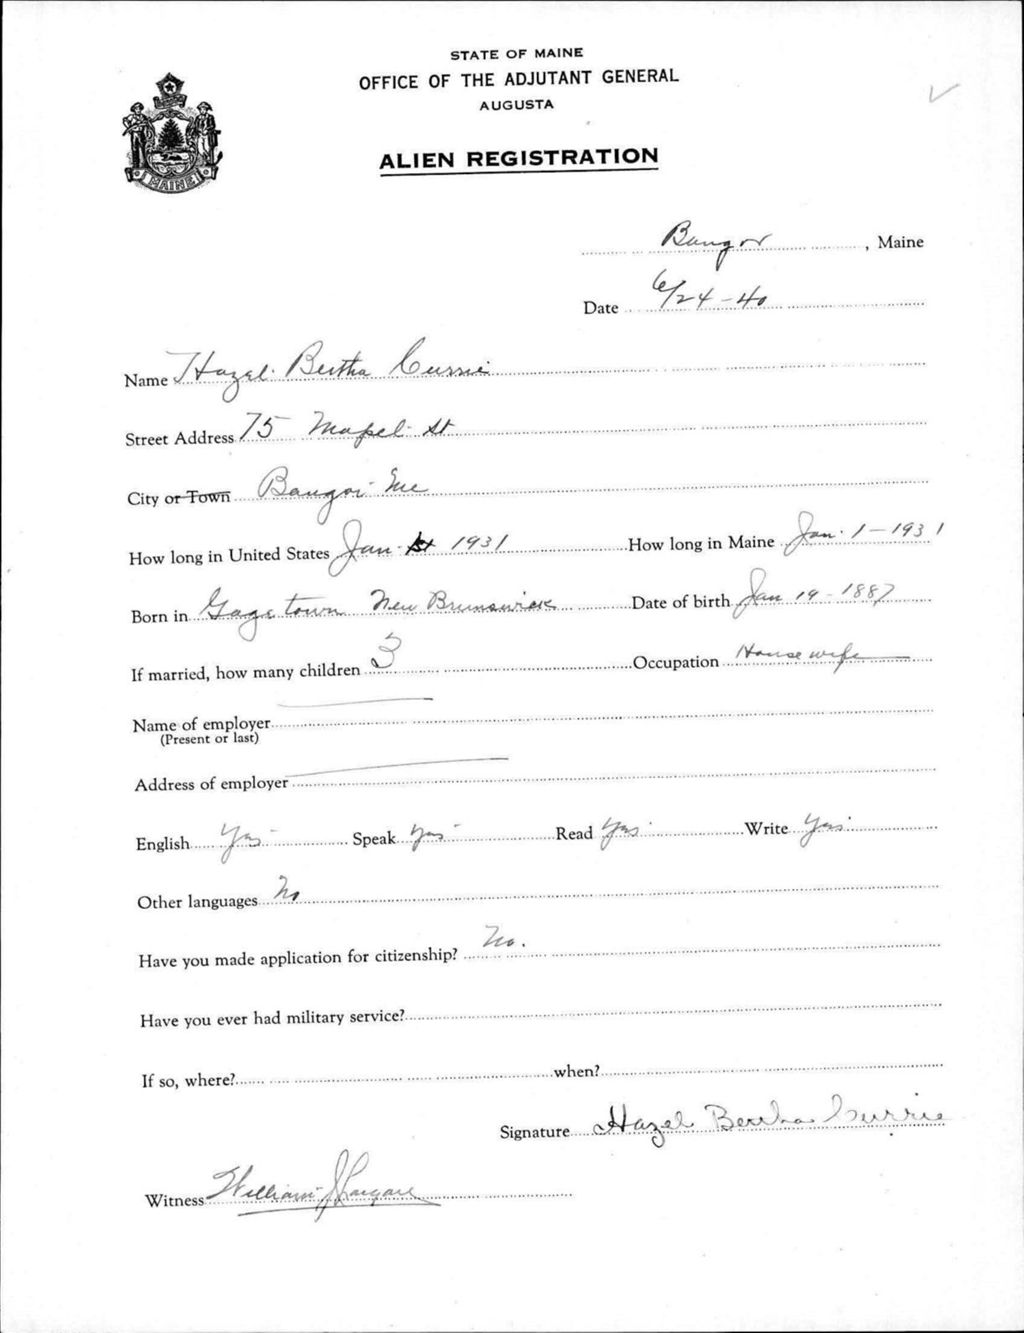 STATE OF MAINE
OFFICE OF THE ADJUTANT GENERAL
AUGUSTA
ALIEN REGISTRATION
MAINE
Bangor, Maine
Date 6/24-40
Name Hazel Bertha Currie
Street Address 75 Mapel St
City or Town Bangor Me
How long in United States Jan 1st 1931 How long in Maine Jan. 1-1931
Born in Gagetown New Brunswick Date of birth Jan 19-1887
If married, how many children 3 Occupation Housewife
Name of employer
(Present or last)
Address of employer
English Yes Speak Yes Read Yes Write Yes
Other languages No
Have you made application for citizenship? No.
Have you ever had military service?
If so, where? when?
Signature Hazel Bertha Currie
Witness William